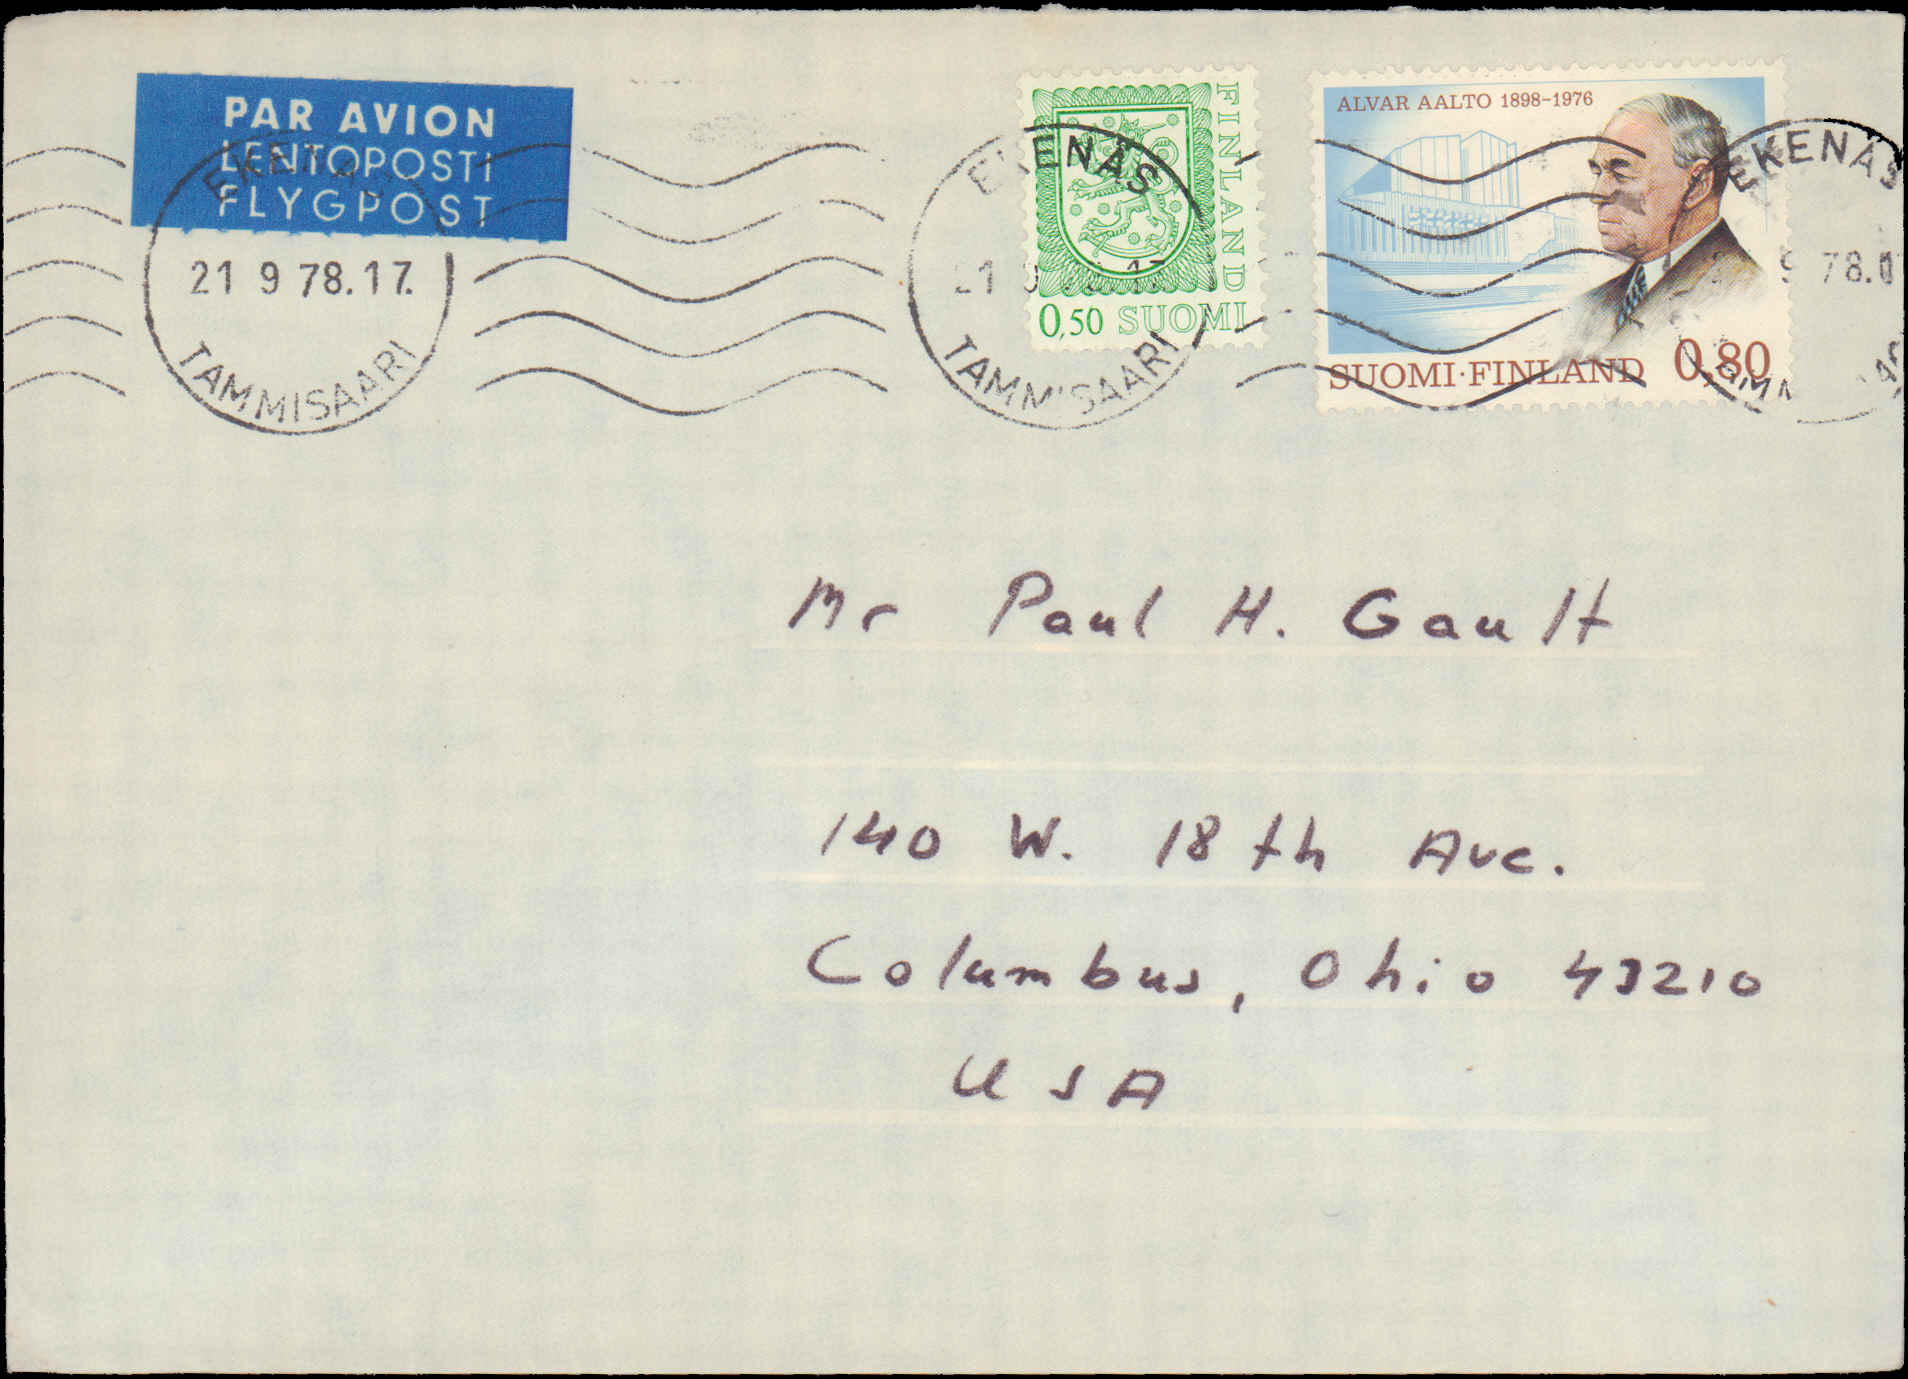 PAR AVION
LENTOPOSTI
FLYGPOST
EKENÄS
21 9 78.17.
TAMMISAARI
EKENÄS
21
TAMMISAARI
FINLAND
0,50 SUOMI
ALVAR AALTO 1898–1976
SUOMI·FINLAND 0,80
EKENÄS
9 78.17
Mr Paul H. Gault
140 W. 18th Ave.
Columbus, Ohio 43210
USA